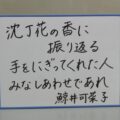 沈丁花の香に
振り返る
手をにぎってくれた人
みなしあわせであれ
鯨井可菜子